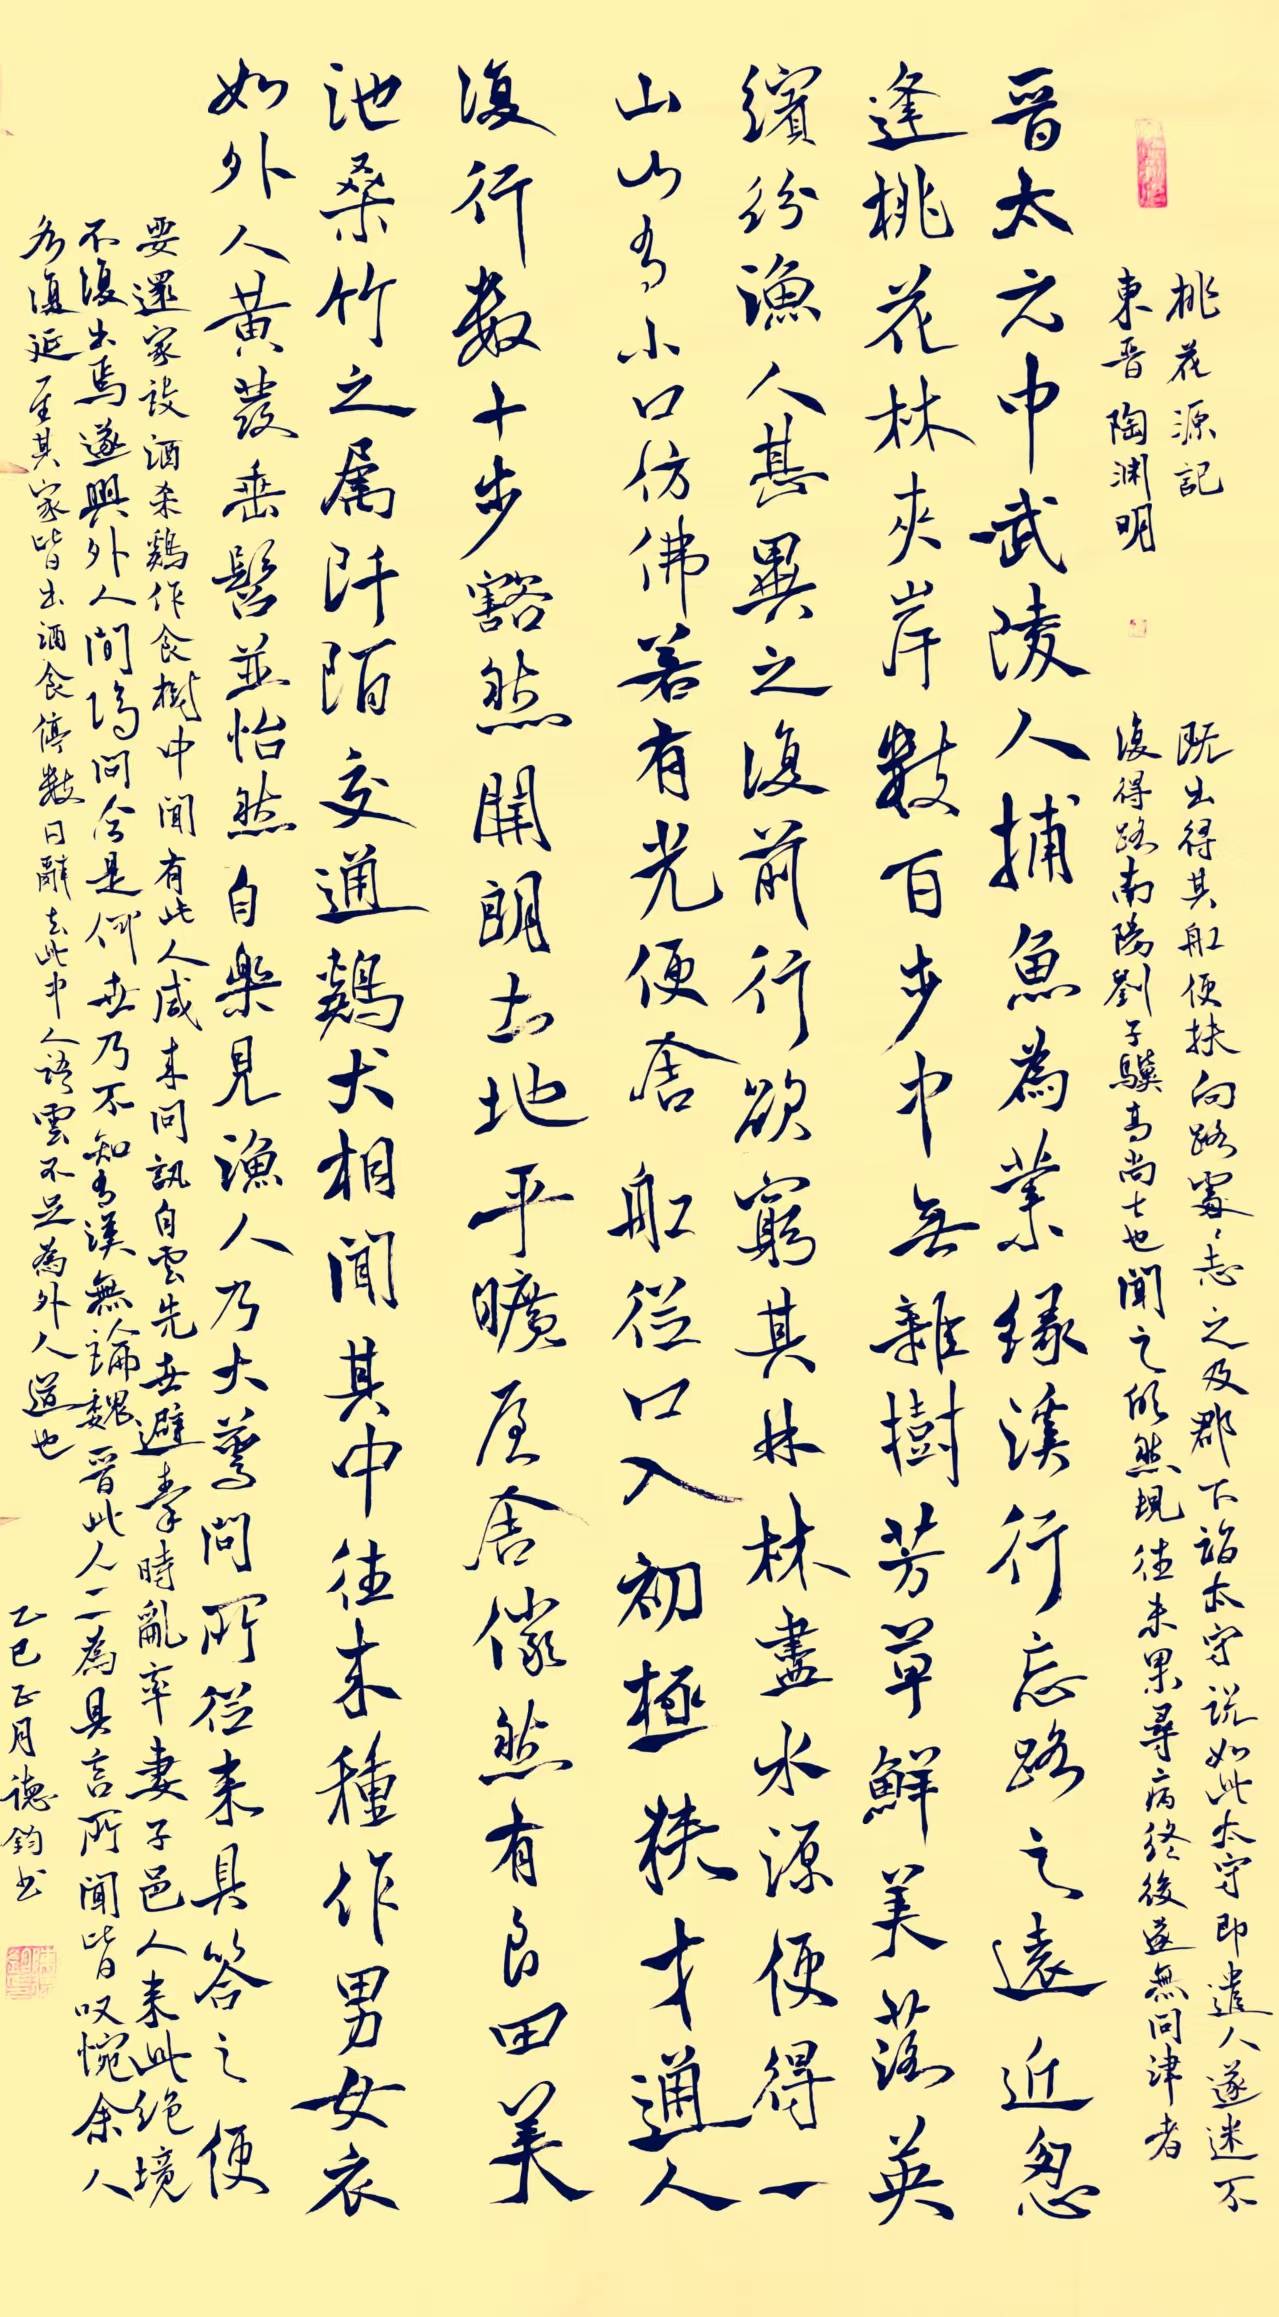 桃花源記
東晋陶渊明
晋太元中武陵人捕魚為業缘溪行忘路之遠近忽
逢桃花林夾岸數百步中無雜樹芳草鮮美落英
繽纷漁人甚異之復前行欲窮其林林盡水源便得一
山山有小口仿佛若有光便舍舡從口入初極狭才通人
復行數十步豁然開朗土地平曠屋舍儼然有良田美
池桑竹之属阡陌交通鷄犬相聞其中往来種作男女衣
如外人黄發垂髫並怡然自樂見漁人乃大驚問所從来具答之便
要還家設酒杀鷄作食村中聞有此人咸来問訊自雲先世避秦時亂率妻子邑人来此绝境
不復出焉遂與外人間隔問今是何世乃不知有漢無論魏晋此人一一為具言所聞皆叹惋余人
各復延至其家皆出酒食停數日辭去此中人語雲不足為外人道也
既出得其舡便扶向路處々志之及郡下詣太守説如此太守即遣人遂迷不
復得路南陽劉子驥高尚士也聞之欣然規往未果尋病終後遂無問津者
乙巳正月德鈞书